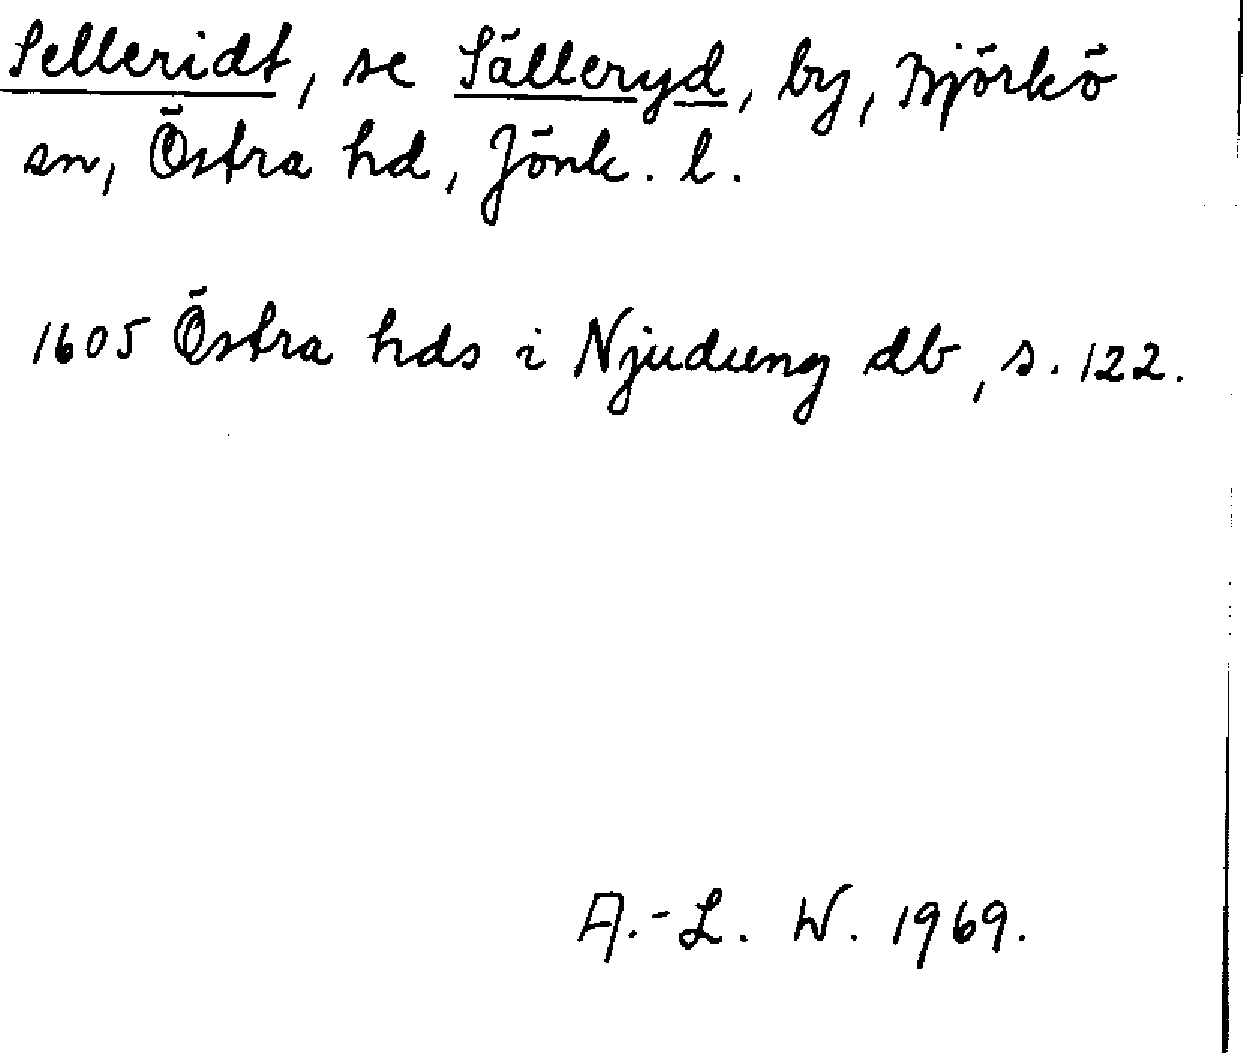 Selleridt, se Sälleryd, by, Björkö
sn, Östra hd, Jönk. l.
1605 Östra hds i Njudung db, s. 122.
A.-L. W. 1969.